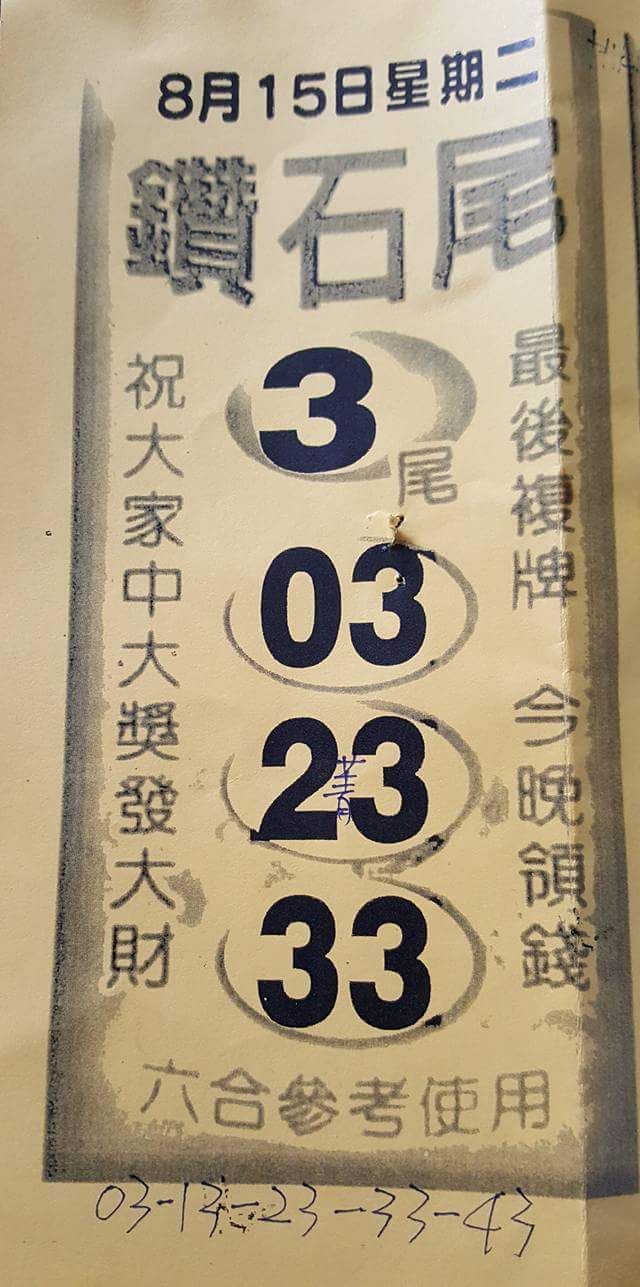 8月15日星期二
鑽石尾
最後複牌 今晚領錢
3尾
03
23
菁
33
祝大家中大獎發大財
六合參考使用
03-13-23-33-43